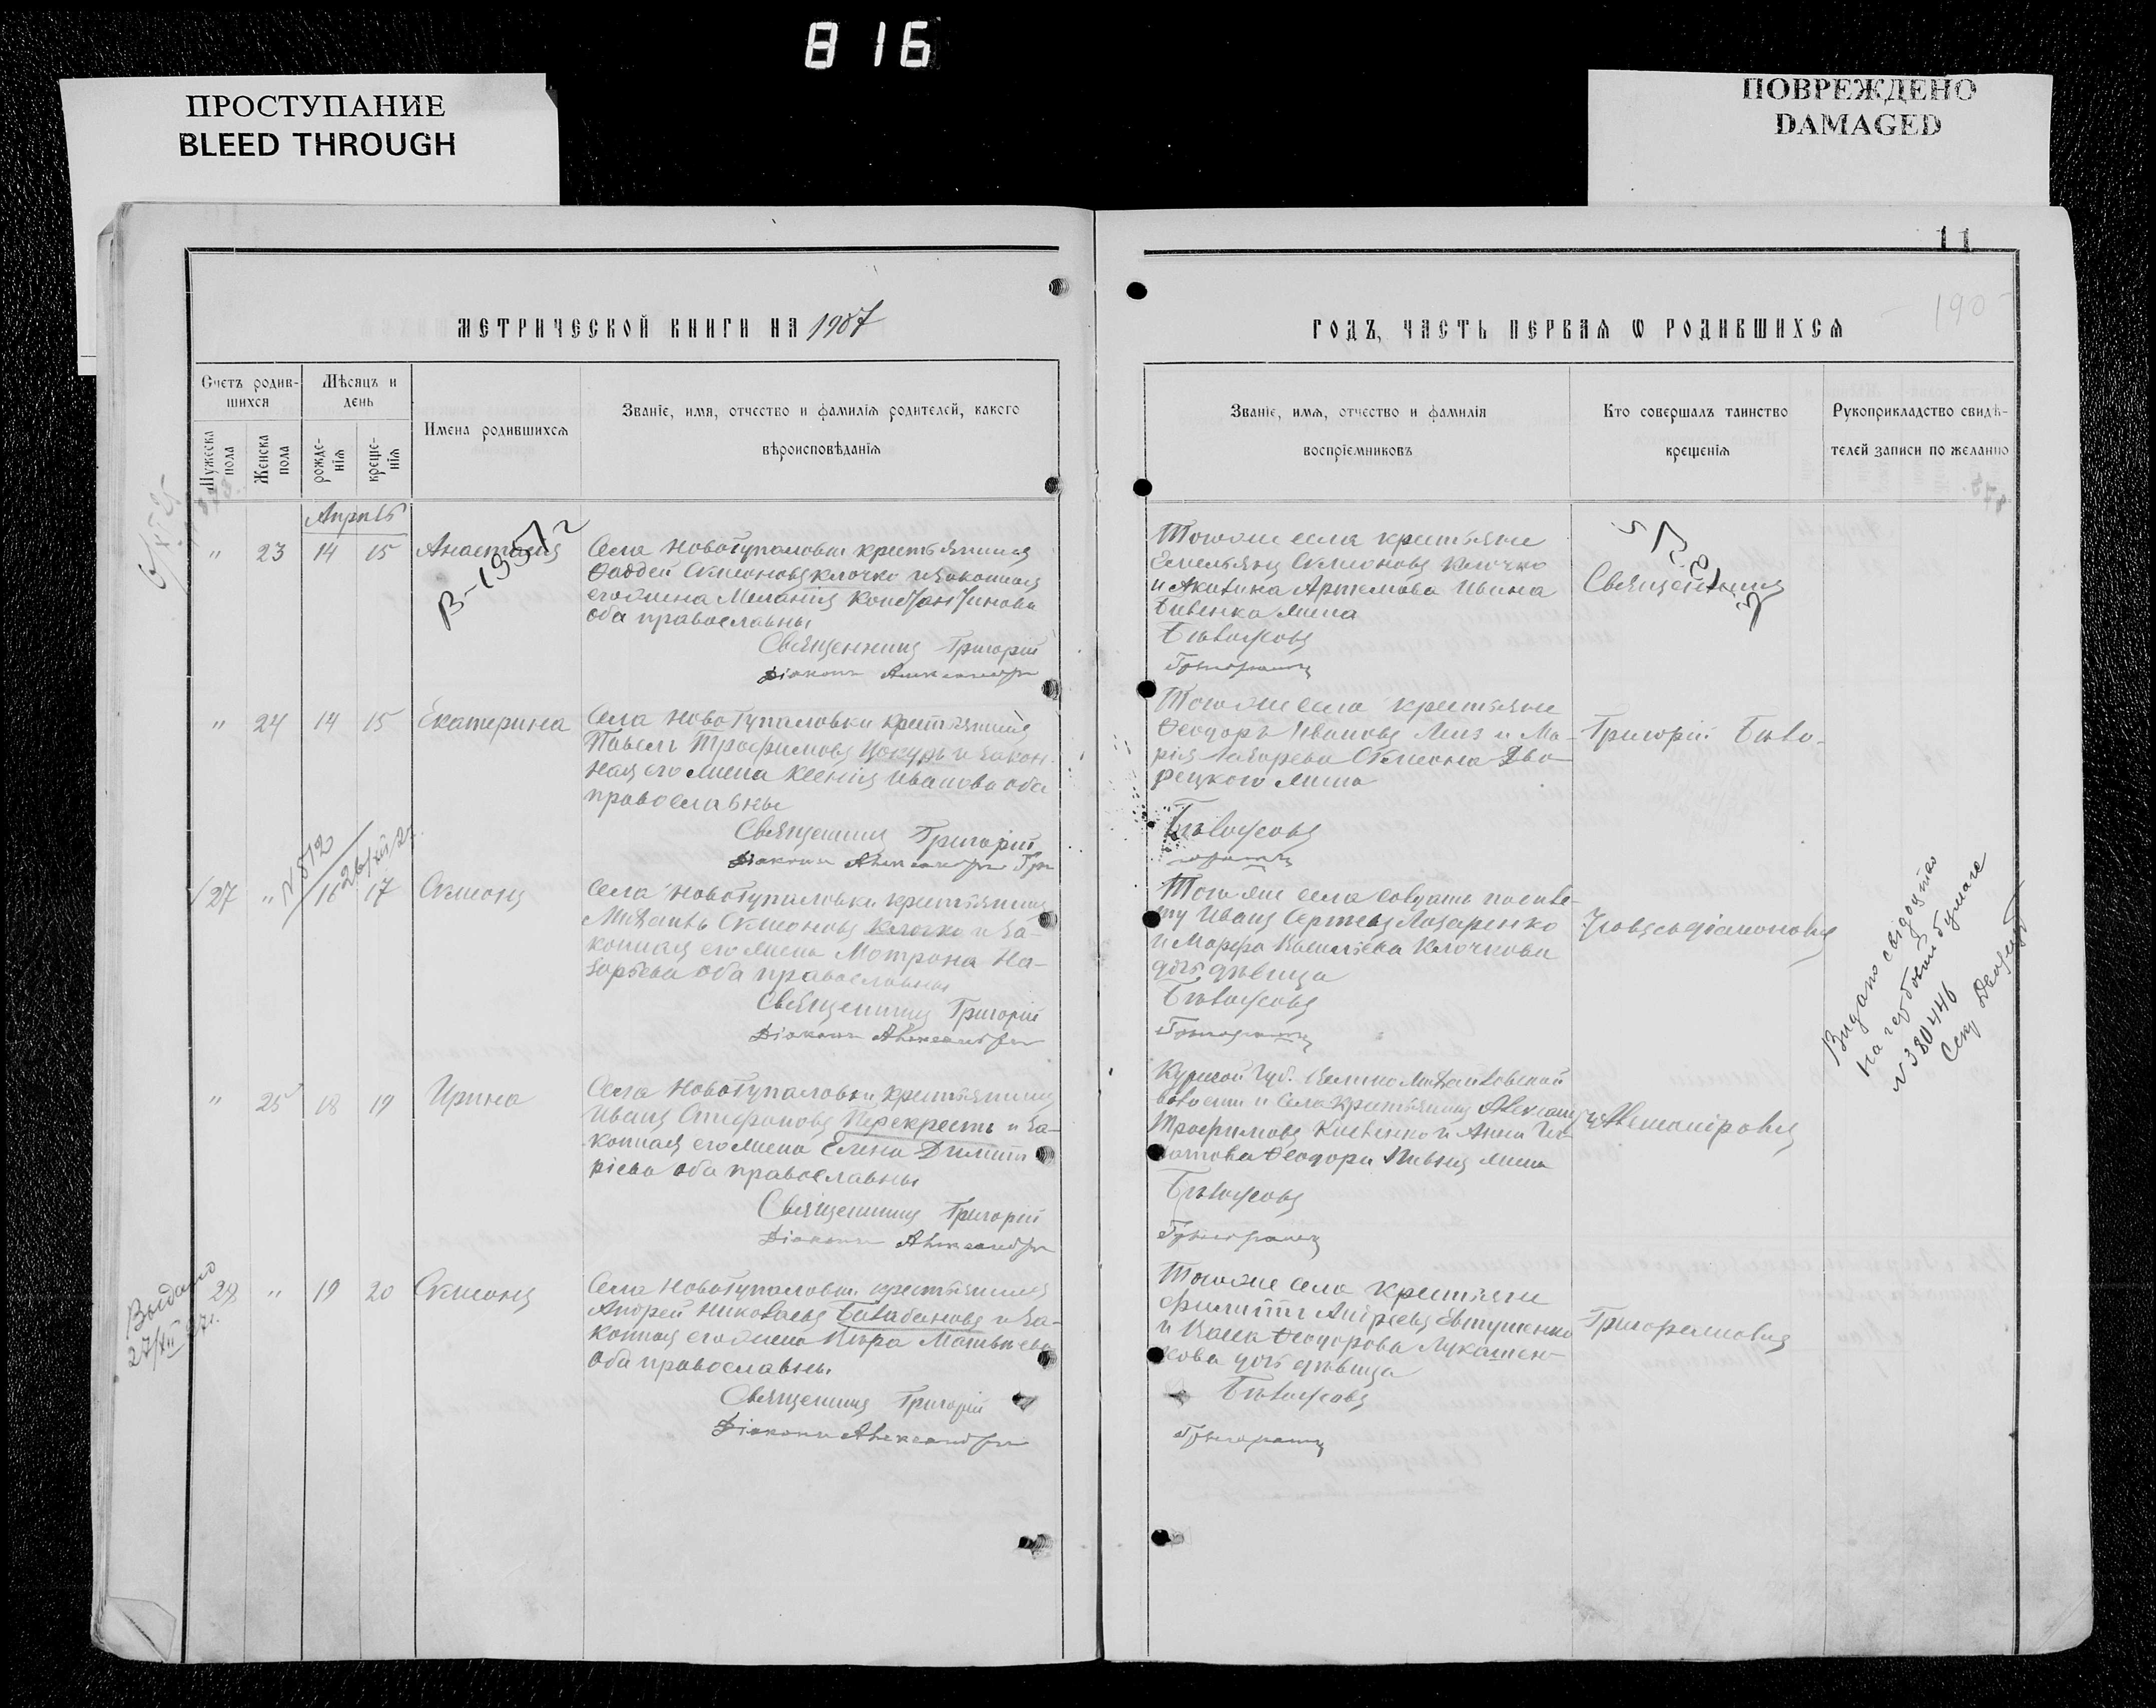 816
ПРОСТУПАНИЕ
BLEED THROUGH
ПОВРЕЖДЕНО
DAMAGED
11
МЕТРИЧЕСКОЙ КНИГИ НА 1907
ГОДЪ, ЧАСТЬ ПЕРВАЯ Ѡ РОДИВШИХСЯ
190
Счетъ родив-
шихся
Мужеска пола
Женска пола
Мѣсяцъ и
день
рожде-
нія
креще-
нія
Имена родившихся
Званіе, имя, отчество и фамилія родителей, какого
вѣроисповѣданія
Званіе, имя, отчество и фамилія
воспріемниковъ
Кто совершалъ таинство
крещенія
Рукоприкладство свидѣ-
телей записи по желанію
Апрѣль
" 23 14 15 Анастасія
Села Новогупаловки крестьянинъ
Фаддей Симеоновъ Клочко и законная
его жена Меланія Константинова
оба православны
Священникъ Григорій
Діаконъ Александръ
Того же села крестьяне
Емельянъ Симеоновъ Клочко
и Акилина Артемова Ивана
жена
Бѣлоусовъ
Григоровичъ
Священникъ
" 24 14 15 Екатерина
Села Новогупаловки крестьянинъ
Павелъ Трофимовъ Цокуръ и закон-
ная его жена Ксенія Иванова оба
православны
Священникъ Григорій
Діаконъ Александръ Гри
Того же села крестьяне
Феодоръ Ивановъ и Ма-
рія Захарова Симеона Дво-
рецкого жена
Бѣлоусовъ
горовичъ
Григорій Бѣло-
N 812
26/XII 2
27 " 16 17 Симеонъ
Села Новогупаловки крестьянинъ
Михаилъ Симеоновъ Клочко и за-
конная его жена Мотрона На-
зарьева оба православны
Священникъ Григорій
Діаконъ Александръ
Того же села солдатъ по биле-
ту Иванъ Сергѣевъ Лазаренко
и Марфа Васильева Клочкова
дочь дѣвица
Бѣлоусовъ
Григоровичъ
усовъ съ діакономъ
Видано свідоцтво
на гербовій бумаге
N 380446
" 25 18 19 Ирина
Села Новогупаловки крестьянинъ
Иванъ Стефановъ Перекрестъ и за-
конная его жена Елена Димит-
ріева оба православны
Священникъ Григорій
Діаконъ Александръ
Курской губ. Велико Михайловской
волости и села крестьянинъ Алексѣй
Трофимовъ и Анна
Феодора жена
Бѣлоусовъ
Григоровичъ
Александромъ
Выдано
27/XII 27г.
28 " 19 20 Симеонъ
Села Новогупаловки крестьянинъ
Андрей Николаевъ Балабановъ и за-
конная его жена Кира Матвѣева
оба православны
Священникъ Григорій
Діаконъ Александръ
Того же села крестьяне
Филиппъ Андреевъ Евтушенко
и Васса Феодорова Лукашен-
кова дочь дѣвица
Бѣлоусовъ
Григоровичъ
Григоровичемъ